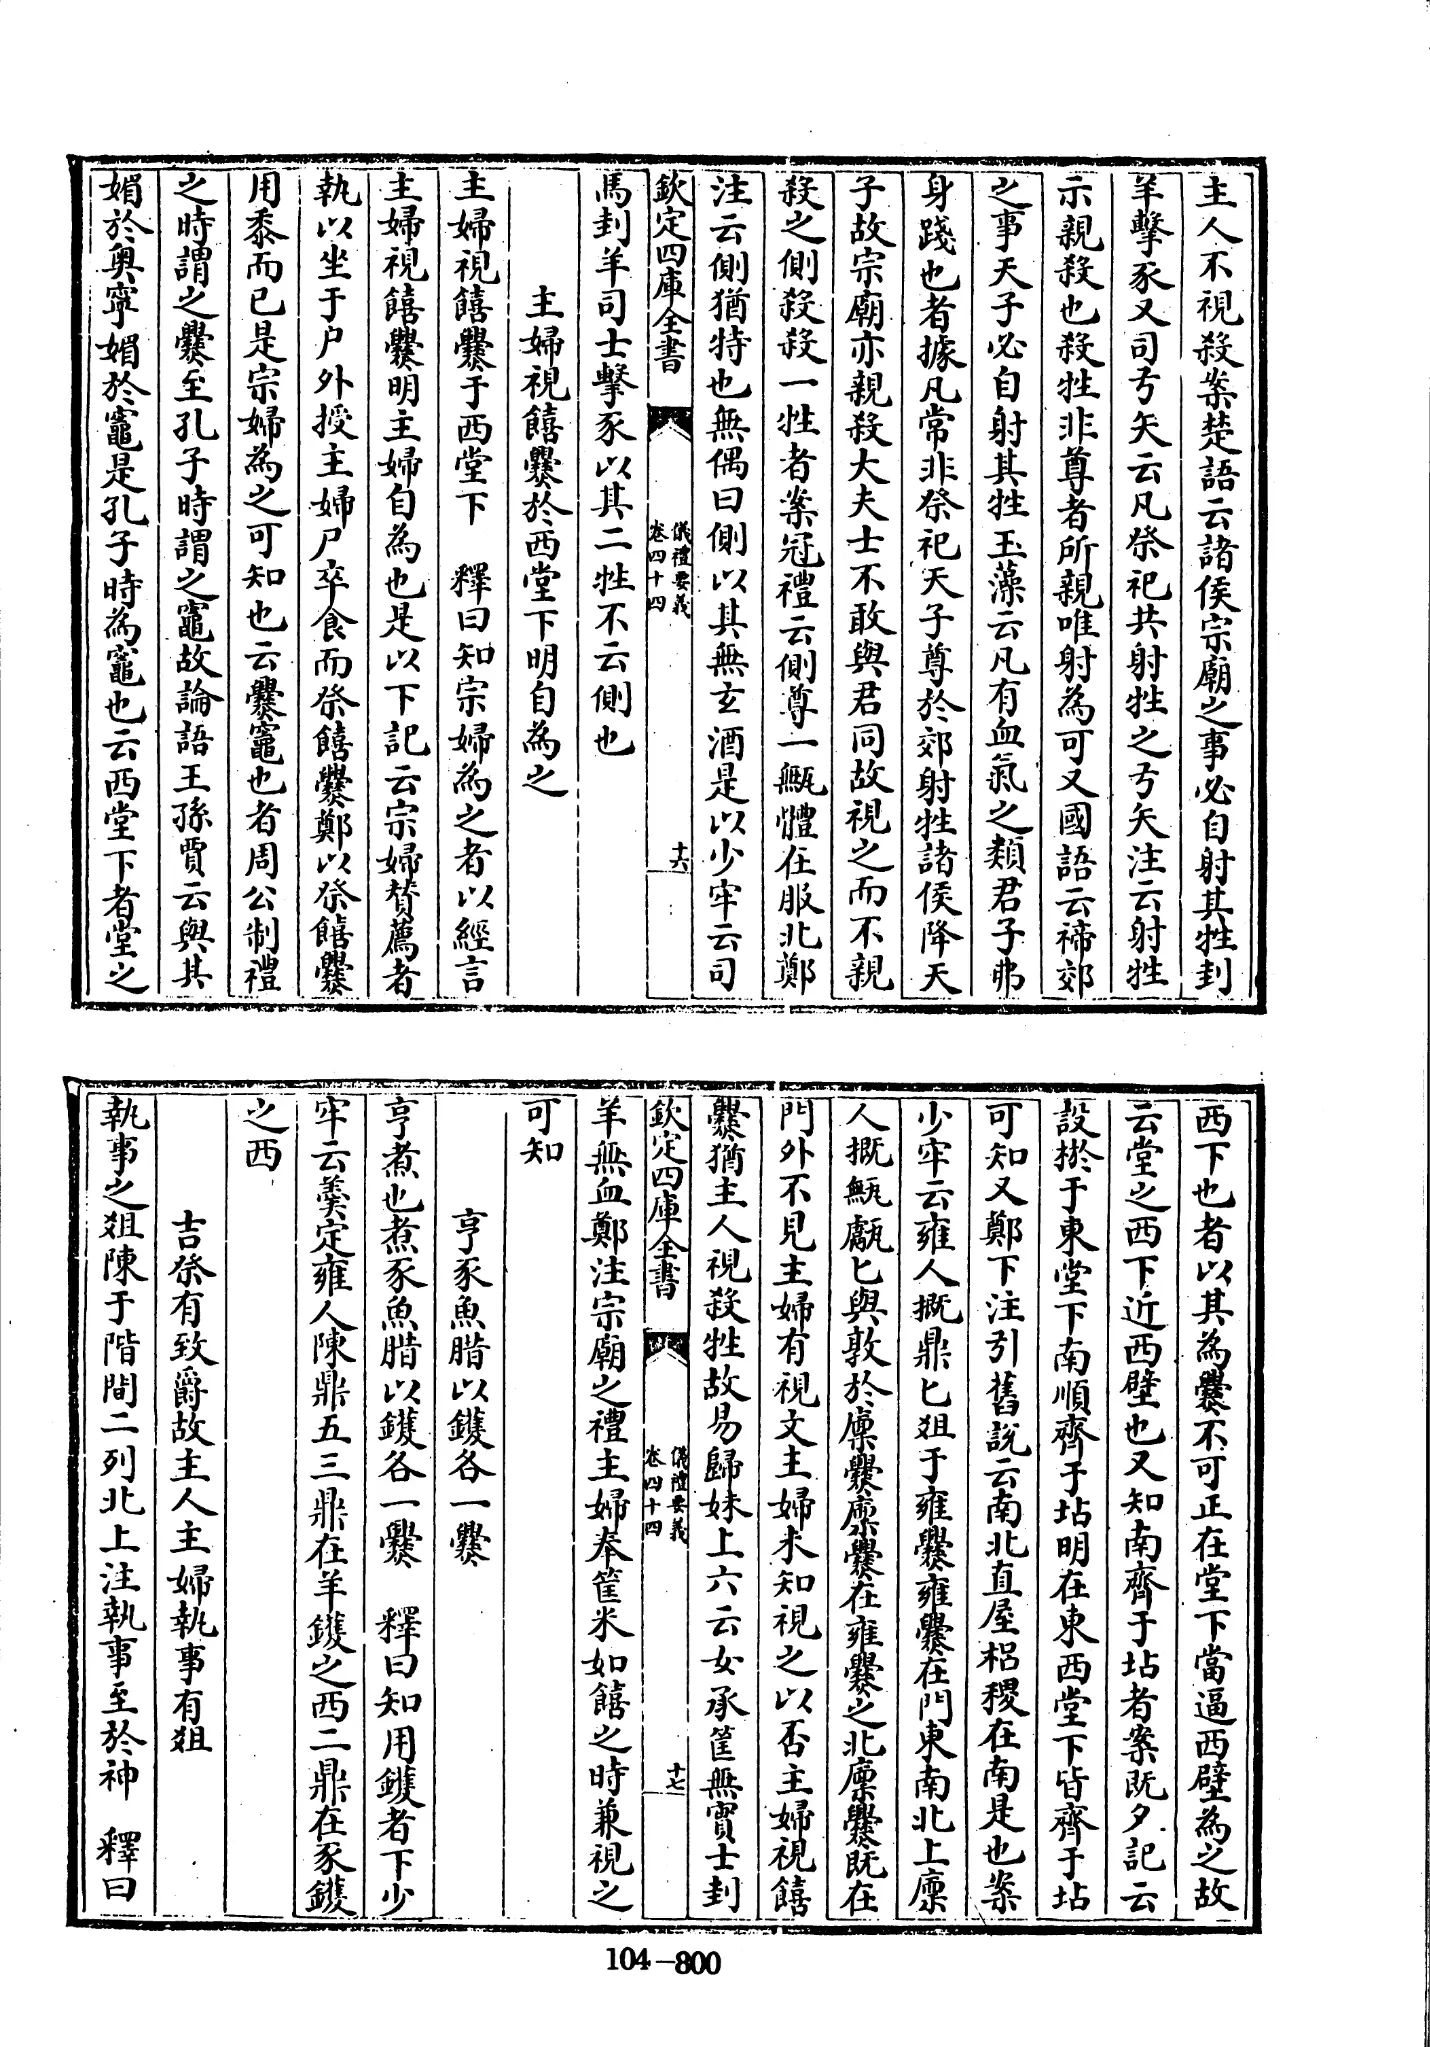 主人不視殺案楚語云諸侯宗廟之事必自射其牲刲
羊擊豕又司弓矢云凡祭祀共射牲之弓矢注云射牲
示親殺也殺牲非尊者所親唯射為可又國語云禘郊
之事天子必自射其牲玉藻云凡有血氣之類君子弗
身踐也者據凡常非祭祀天子尊於郊射牲諸侯降天
子故宗廟亦親殺大夫士不敢與君同故視之而不親
殺之側殺殺一牲者案冠禮云側尊一甒醴在服北鄭
注云側猶特也無偶曰側以其無玄酒是以少牢云司
欽定四庫全書
儀禮要義
卷四十四
十六
馬刲羊司士擊豕以其二牲不云側也
主婦視饎爨於西堂下明自為之
主婦視饎爨于西堂下 釋曰知宗婦為之者以經言
主婦視饎爨明主婦自為也是以下記云宗婦贊薦者
執以坐于戶外授主婦尸卒食而祭饎爨鄭以祭饎爨
用黍而已是宗婦為之可知也云爨竈也者周公制禮
之時謂之爨至孔子時謂之竈故論語王孫賈云與其
媚於奧寧媚於竈是孔子時為竈也云西堂下者堂之
西下也者以其為爨不可正在堂下當逼西壁為之故
云堂之西下近西壁也又知南齊于坫者案既夕記云
設棜于東堂下南順齊于坫明在東西堂下皆齊于坫
可知又鄭下注引舊說云南北直屋梠稷在南是也案
少牢云雍人摡鼎匕俎于雍爨雍爨在門東南北上廩
人摡甑甗匕與敦於廩爨廩爨在雍爨之北廩爨既在
門外不見主婦有視文主婦未知視之以否主婦視饎
爨猶主人視殺牲故易歸妹上六云女承筐無實士刲
欽定四庫全書
儀禮要義
卷四十四
十七
羊無血鄭注宗廟之禮主婦奉筐米如饎之時兼視之
可知
亨豕魚腊以鑊各一爨
亨煮也煮豕魚腊以鑊各一爨 釋曰知用鑊者下少
牢云羹定雍人陳鼎五三鼎在羊鑊之西二鼎在豕鑊
之西
吉祭有致爵故主人主婦執事有俎
執事之俎陳于階間二列北上注執事至於神 釋曰
104-800